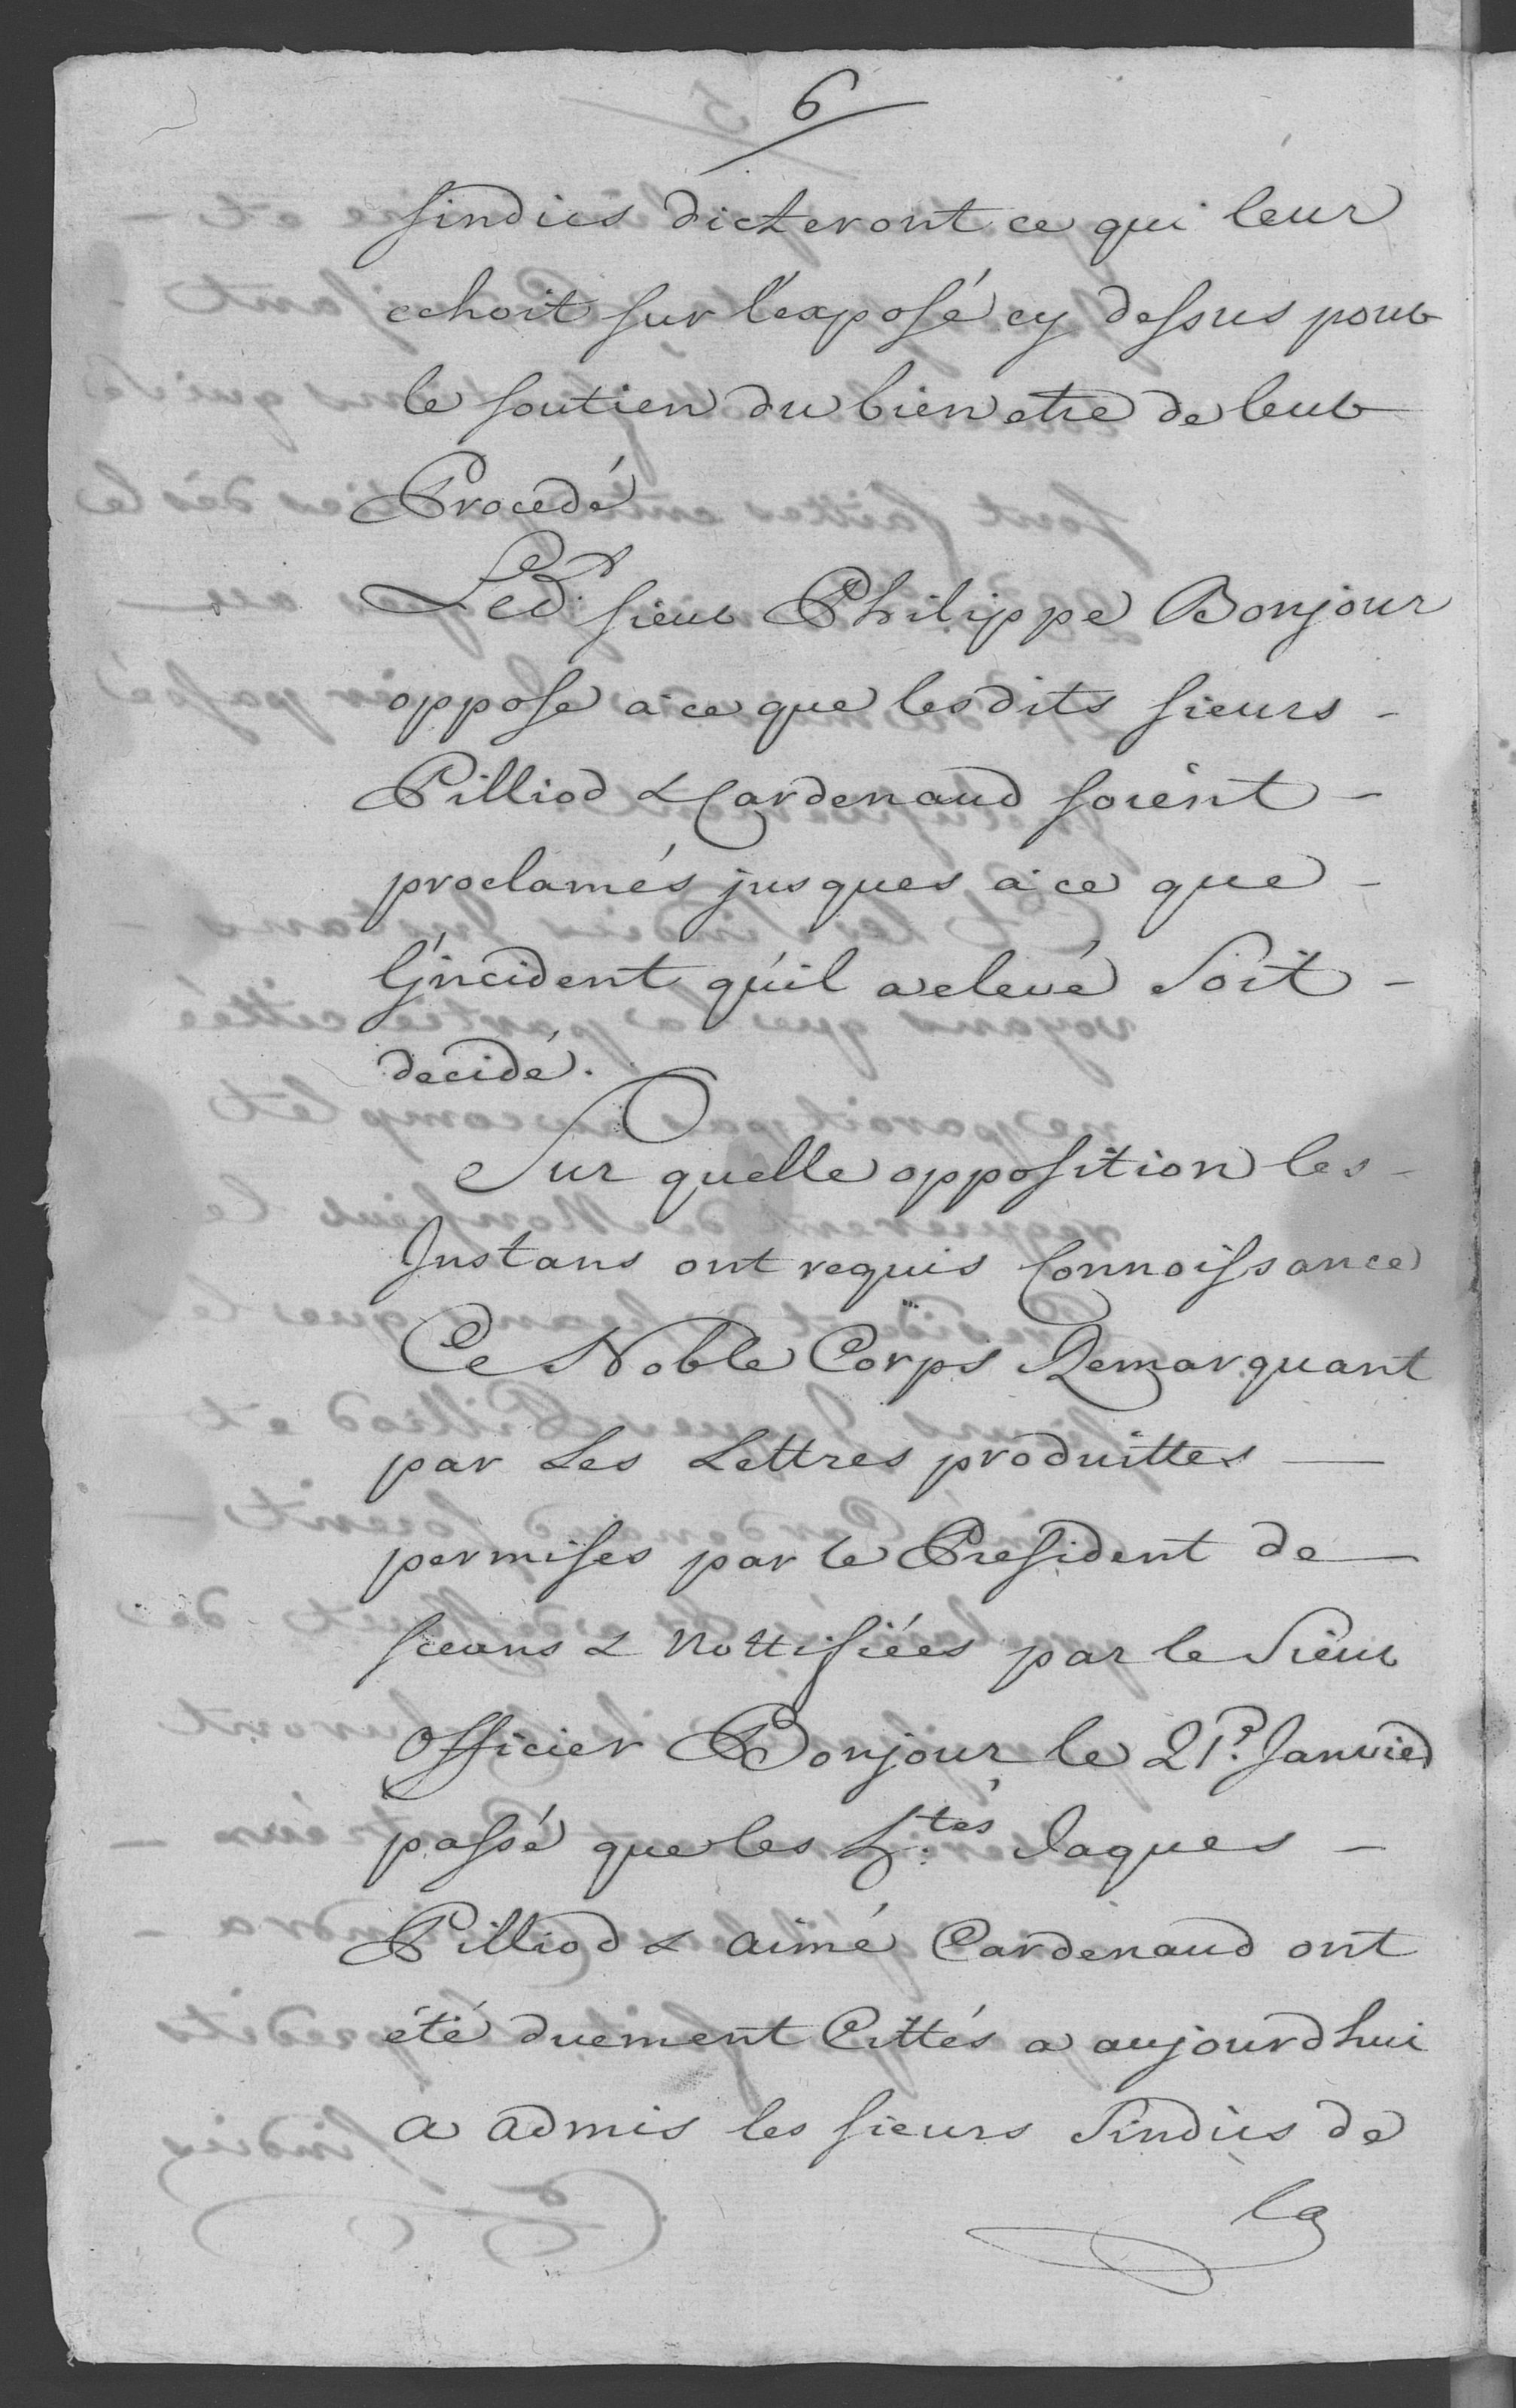 6
sindics dicteront ce qui leur
echoit sur l'exposé cy dessus pour
le soutien du bien etre de leur
Procédé
Led.t sieur Philippe Bonjour
oppose a ce que lesdits sieurs -
Pilliod & Cardenaud soient -
proclamés jusques a ce que -
l'jncident qu'il a elevé soit -
decidé.
Sur quelle opposition les -
Jnstans ont requis Connoissance
Ce Noble Corps Remarquant
par Les Lettres produittes —
permises par le President de —
sceans & Nottifiées par le Sieur
Officier Bonjour le 21.e Janvier
passé que les h.tes Jaques -
Pilliod & aimé Cardenaud ont
été duement Cittés a aujourdhui
a admis les sieurs Sindics de
la